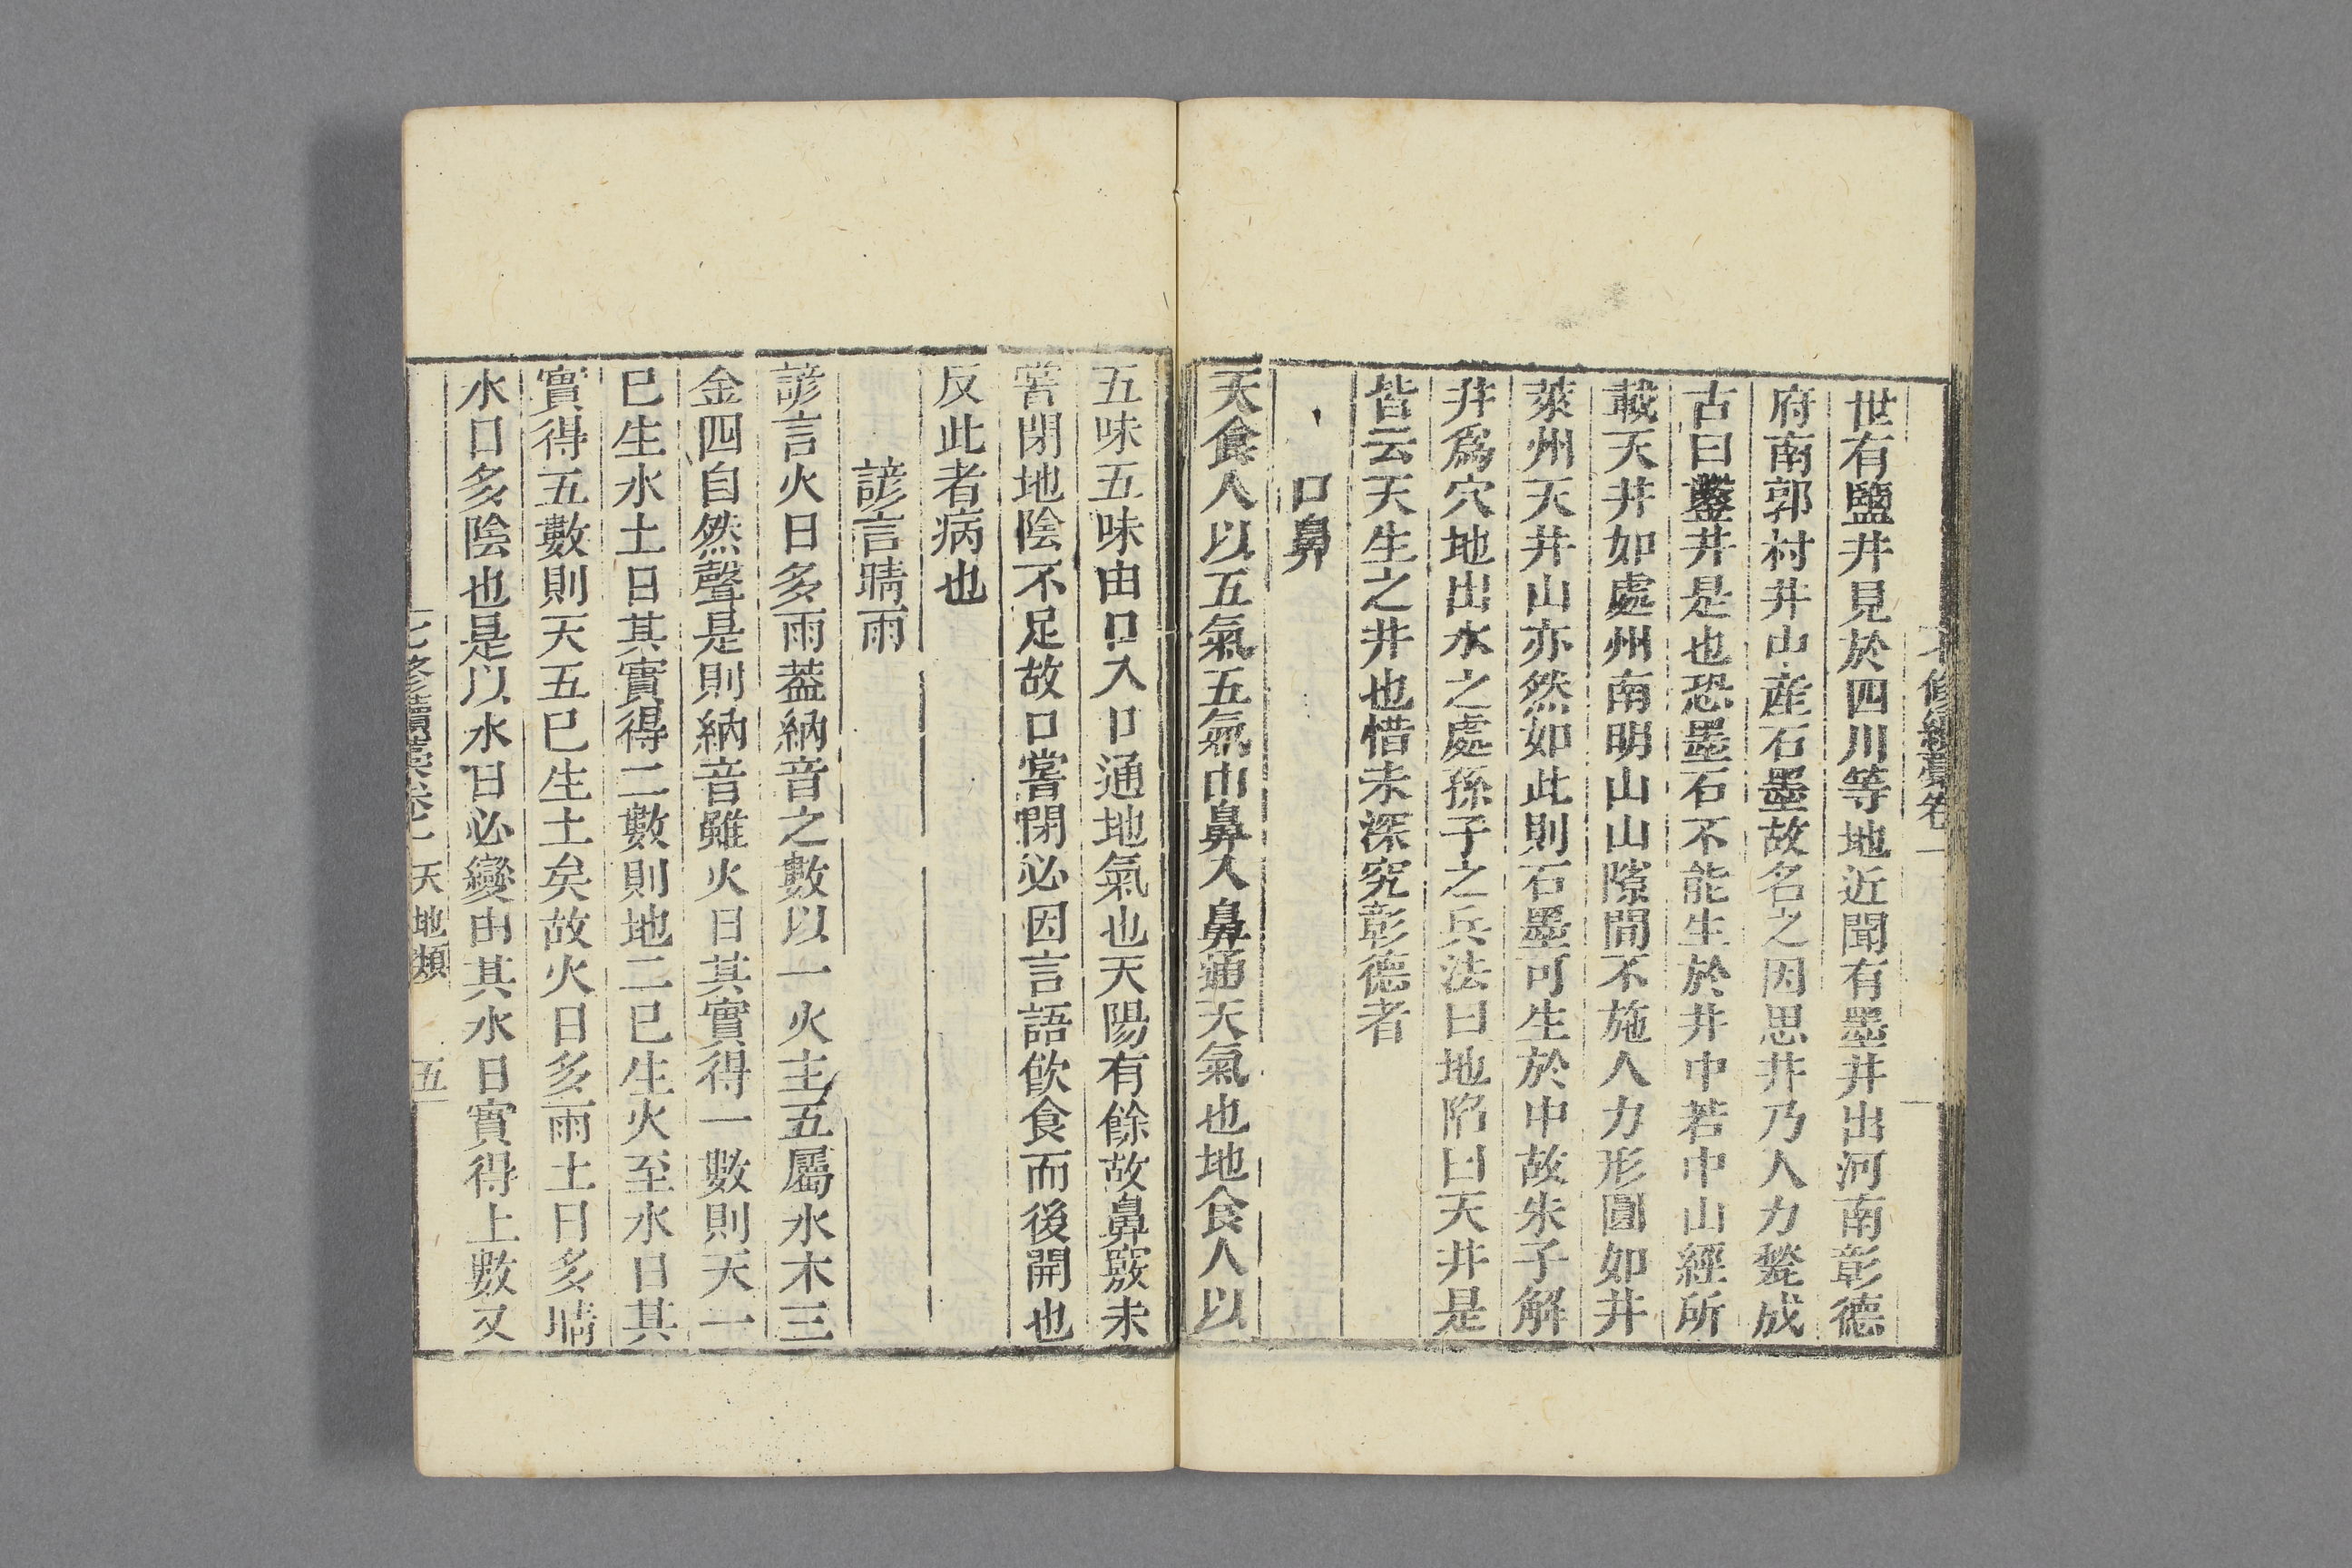 七修續藁卷一
世有鹽井見於四川等地近聞有墨井出河南彰德
府南郭村井山產石墨故名之因思井乃人力甃成
古曰鑿井是也恐墨石不能生於井中若中山經所
載天井如處州南明山山隙間不施人力形圓如井
萊州天井山亦然如此則石墨可生於中故朱子解
井爲穴地出水之處孫子之兵法曰地陷曰天井是
皆云天生之井也惜未深究彰德者
口鼻
天食人以五氣五氣由鼻入鼻通天氣也地食人以
五味五味由口入口通地氣也天陽有餘故鼻竅未
嘗閉地陰不足故口嘗閉必因言語飲食而後開也
反此者病也
諺言晴雨
諺言火日多雨蓋納音之數以一火主五屬水木三
金四自然聲是則納音雖火日其實得一數則天一
巳生水土日其實得二數則地二巳生火至水日其
實得五數則天五巳生土矣故火日多雨土日多晴
水日多陰也是以水日必變由其水日實得上數又
七修續藁卷一 天地類 五